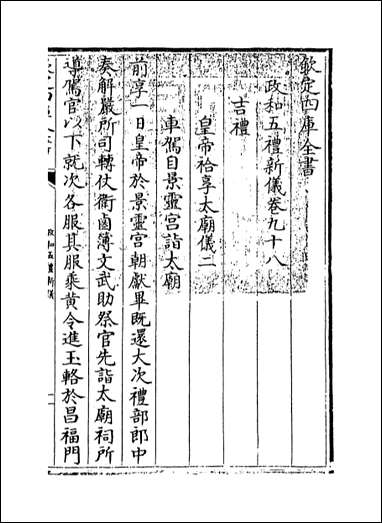 欽定四庫全書
政和五禮新儀卷九十八
吉禮
皇帝祫享太廟儀二
車駕自景靈宫詣太廟
前享一日皇帝於景靈宫朝獻畢既還大次禮部郎中
奏解嚴所司轉仗衛鹵簿文武助祭官先詣太廟祠所
導駕官以下就次各服其服乘黄令進玉輅於昌福門
政和五禮新儀